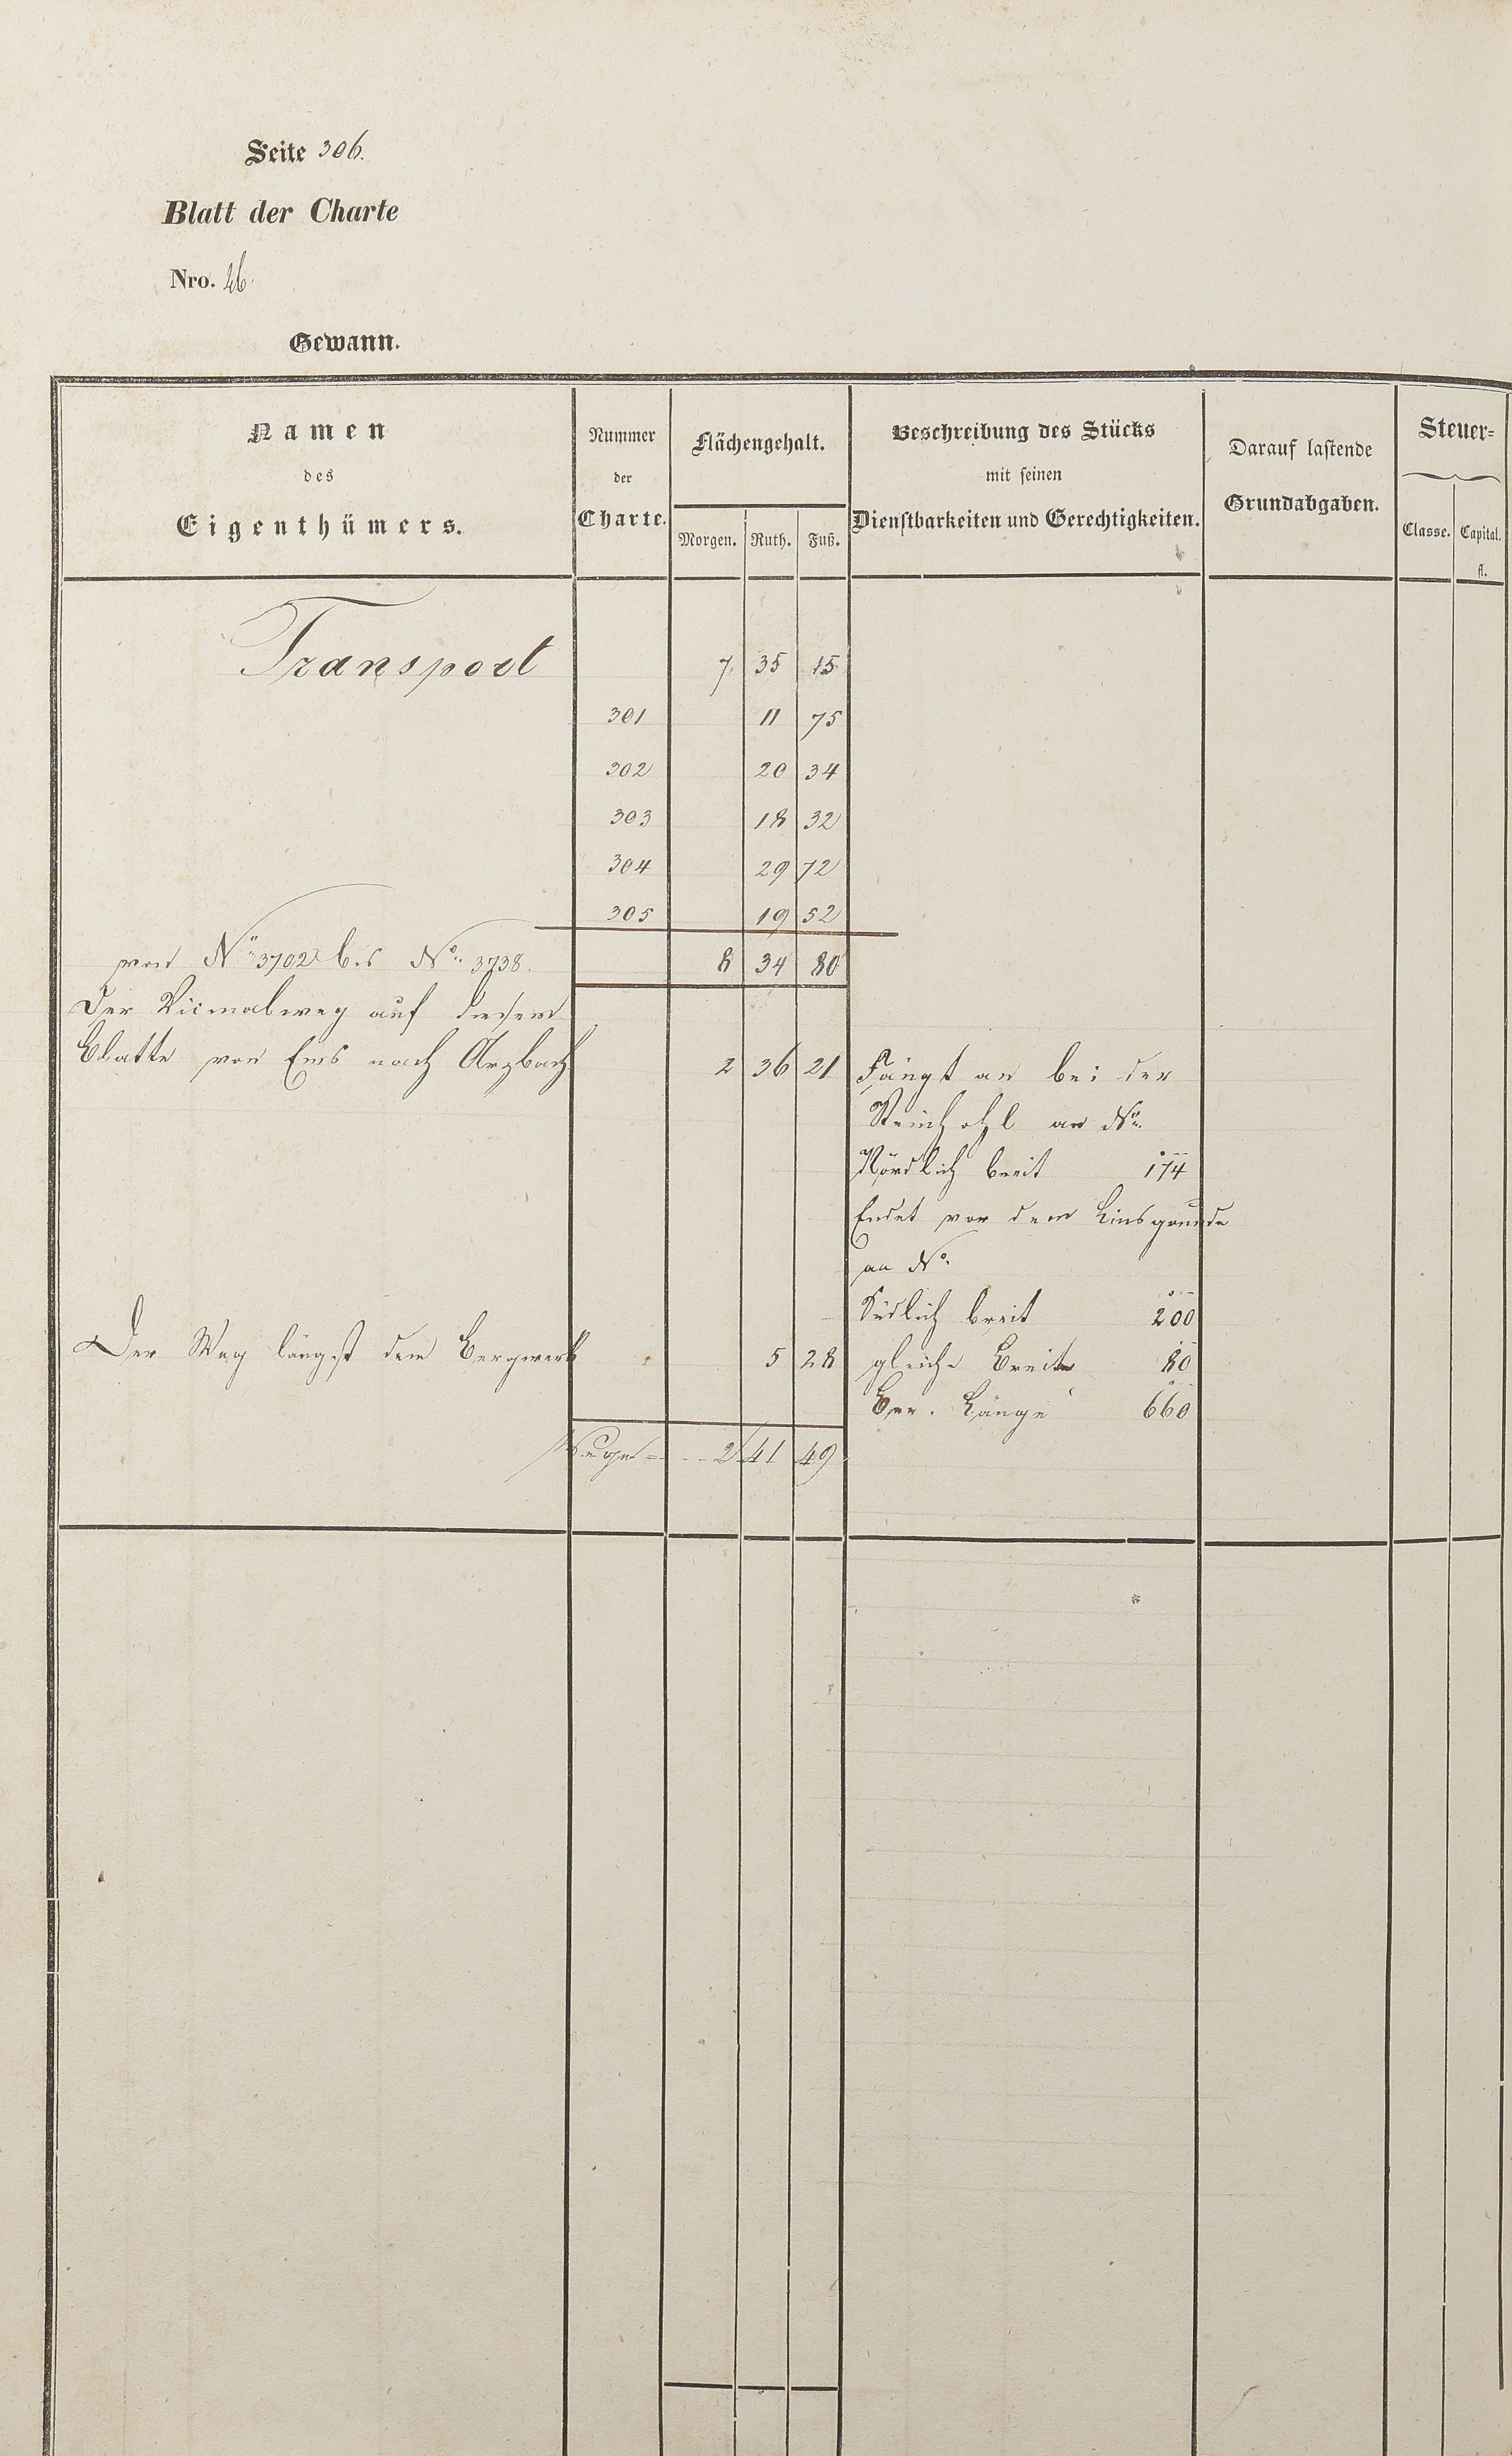 Seite 306.
Blatt der Charte
Nro. 26.
Gewann.
Namen des Eigenthümers.
Nummer der Charte.
Flächengehalt.
Morgen. Ruth. Fuß.
Beschreibung des Stücks mit seinen Dienstbarkeiten und Gerechtigkeiten.
Darauf lastende Grundabgaben.
Steuer=
Classe. Capital.
fl.
Transport 7 35 15
301 11 75
302 20 34
303 18 32
304 29 72
305 19 52
von No 3702 bis No 3738. 8 34 80
Der Vicinalweg auf diesem
Blatte von Ems nach Arzbach 2 36 21 Fängt an bei der
an No
Nördlich breit 174
Endet vor dem Linsgrunde
an No
Südlich breit 200
Der Weg längst dem Bergwerk 5 28 gleiche Breite 80
Ber. Länge 660
Wege = 2 41 49